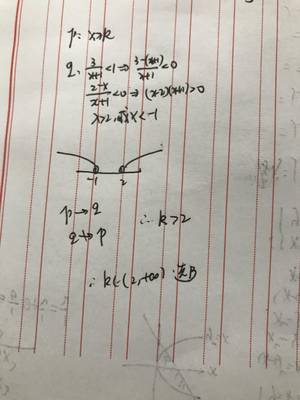 p: x≥k
q: 3/(x+1)<1⇒(3-(x+1))/(x+1)<0
(2-x)/(x+1)<0⇒(x-2)(x+1)>0
x>2,或x<-1
-1 2
p→q ∴k>2
q↛p
∴k∈(2,+∞) 选B